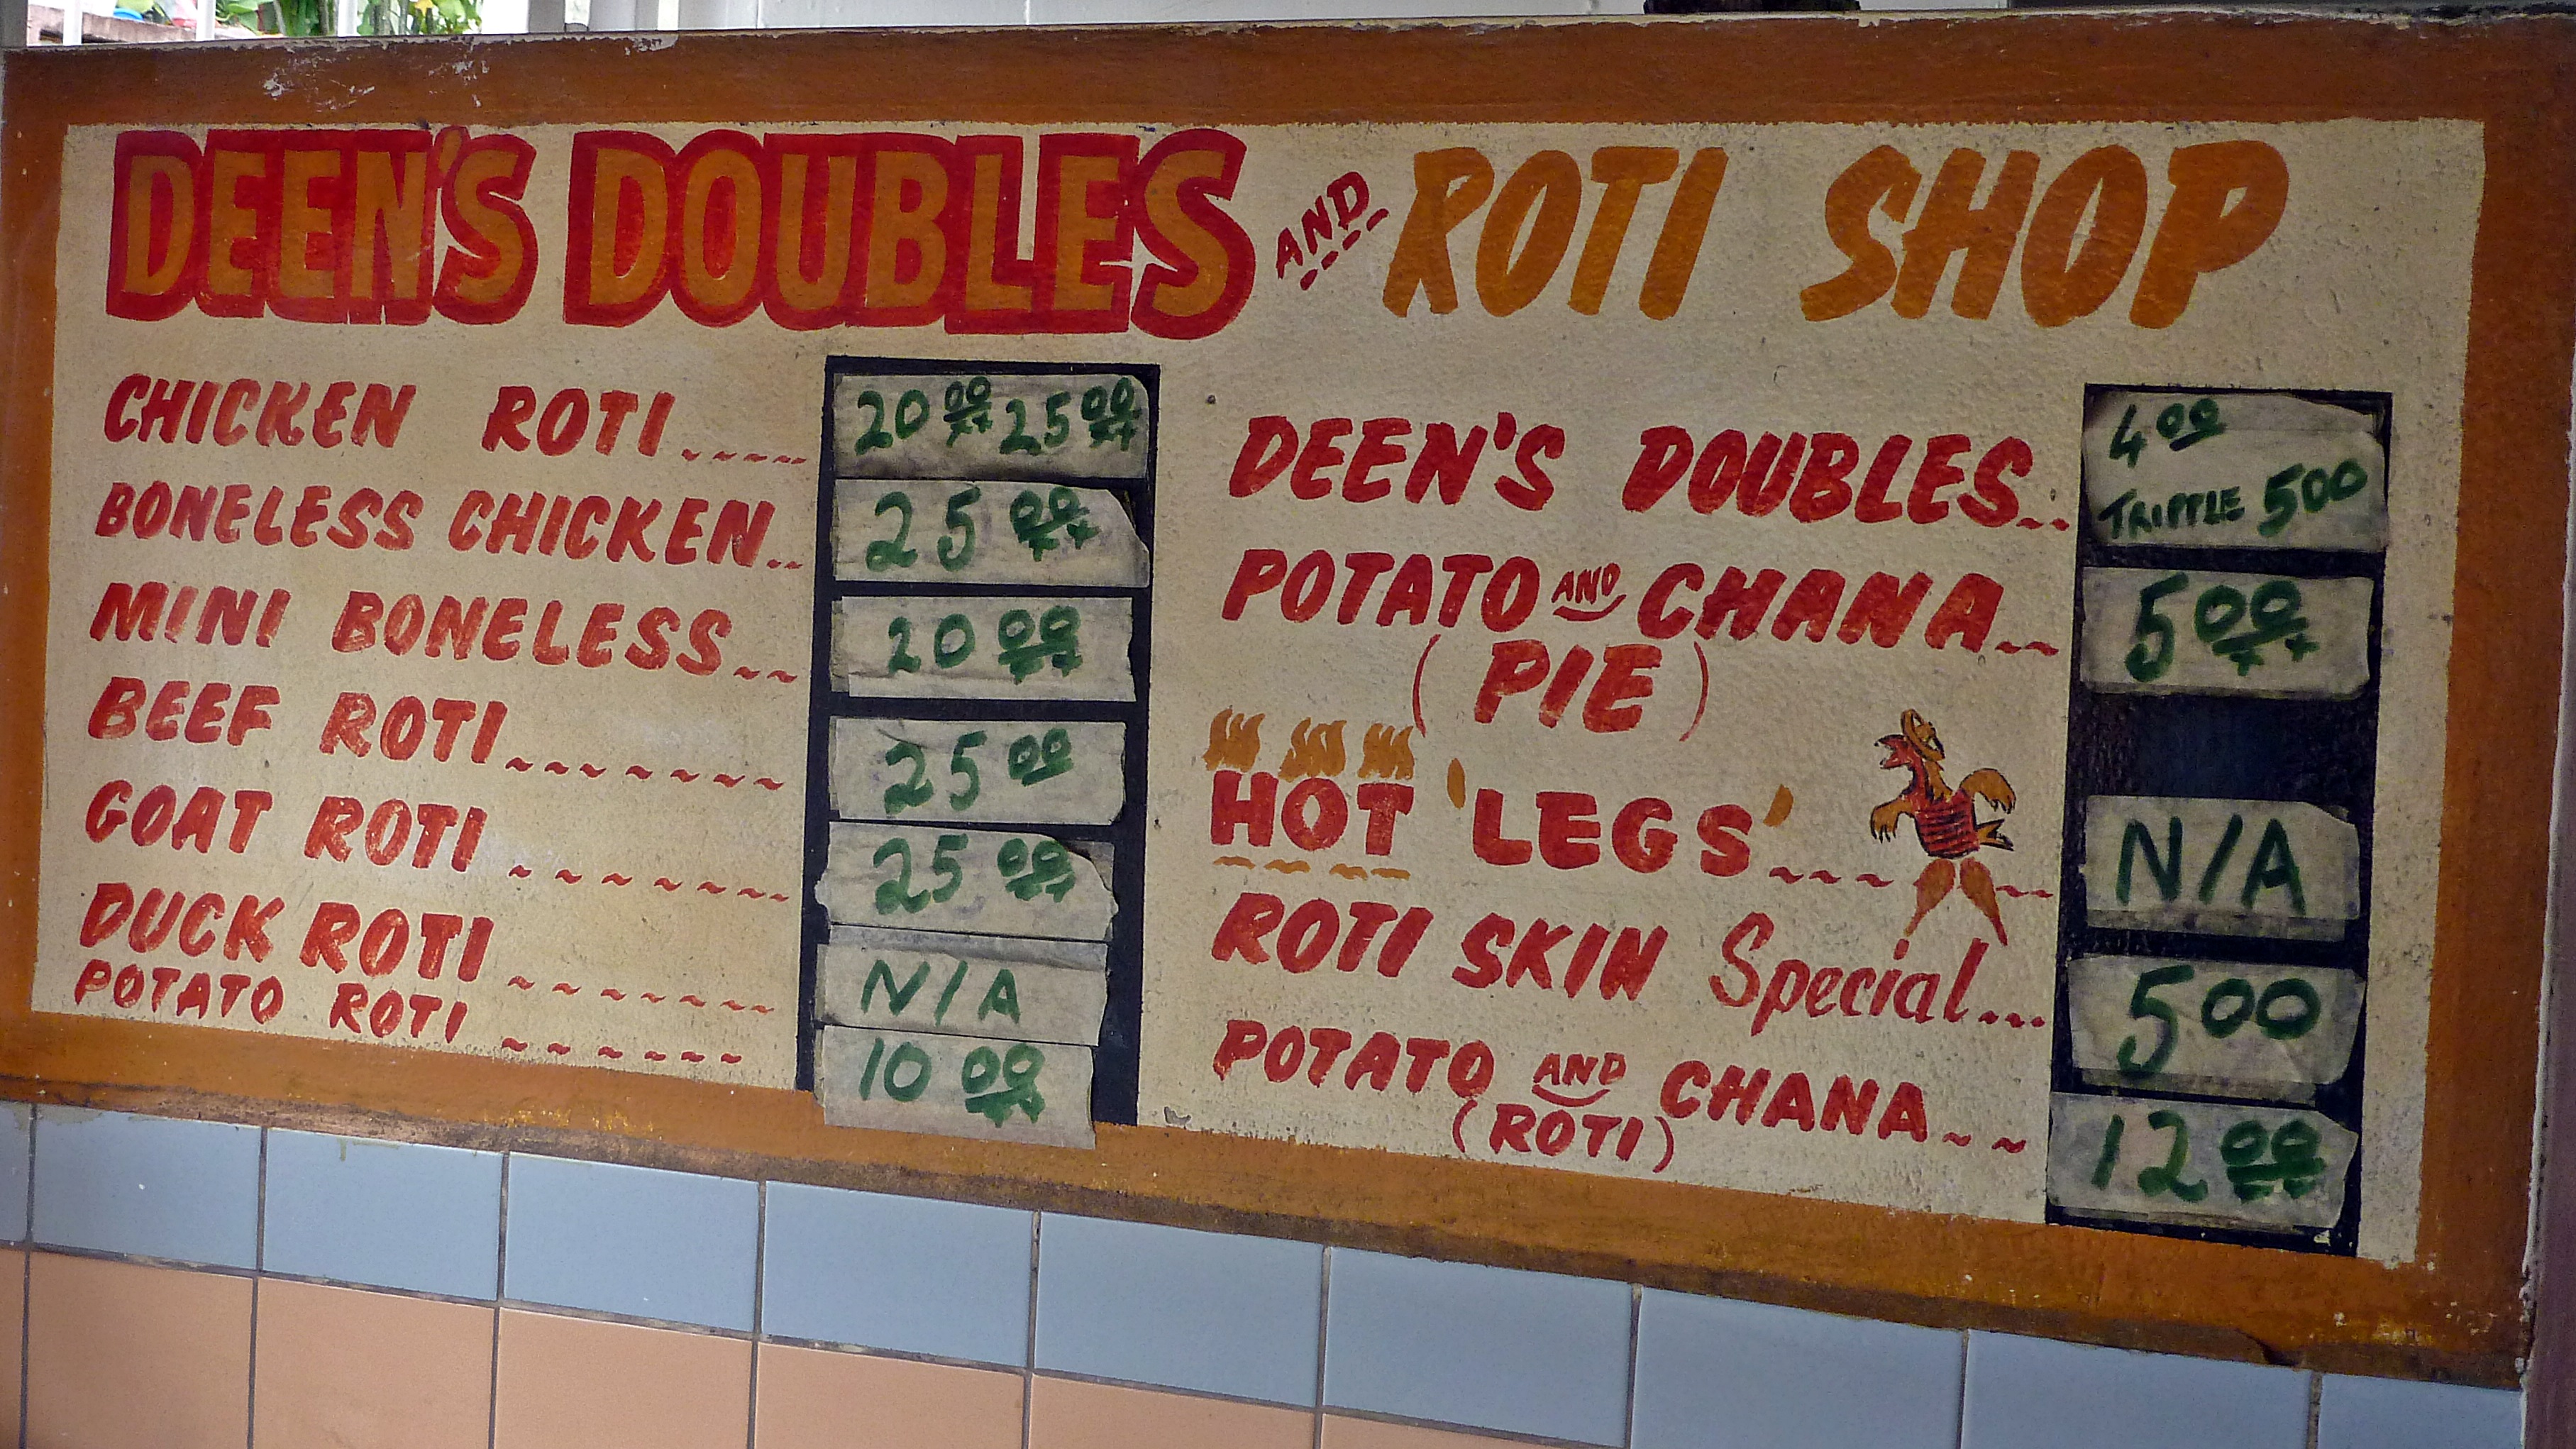 DEEN'S DOUBLES AND ROTI SHOP
CHICKEN ROTI..... 20 00 25 00
BONELESS CHICKEN.. 25 00
MINI BONELESS.. 20 00
BEEF ROTI....... 25 00
GOAT ROTI....... 25 00
DUCK ROTI....... N/A
POTATO ROTI...... 10 00
DEEN'S DOUBLES.. 4 00
TRIPPLE 5 00
POTATO AND CHANA.. 5 00
(PIE)
HOT 'LEGS'...... N/A
ROTI SKIN Special... 5 00
POTATO AND CHANA.. 12 00
(ROTI)